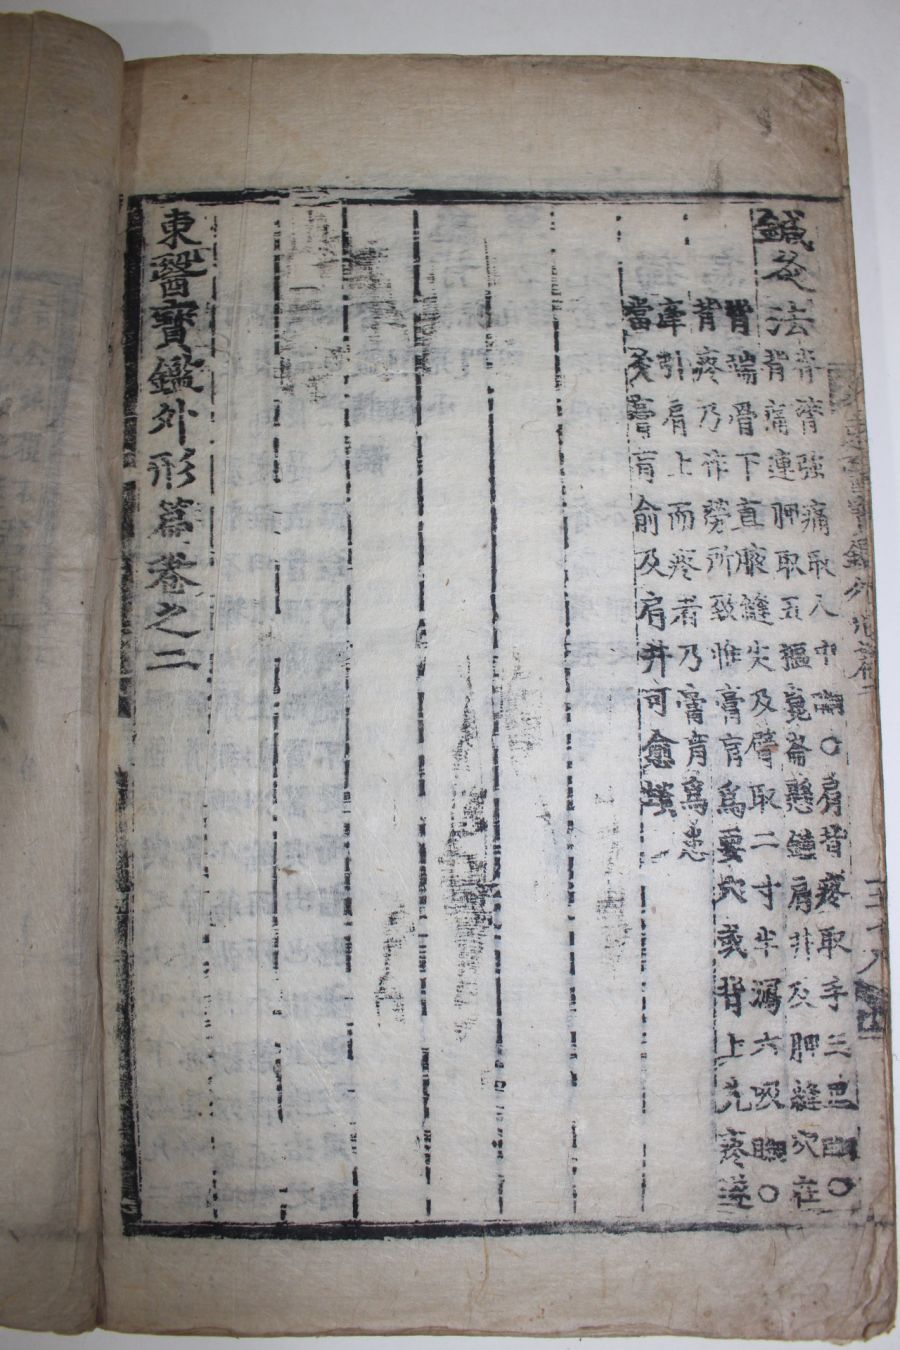 鑑外形篇二 三十八
鍼灸法
脊膂強痛取人中○肩背疼取手三里○
背痛連胛取五樞崑崙懸鍾肩井及胛縫穴在
背端骨下直腋縫尖及臂取二寸半瀉六吸○
背疼乃作勞所致惟膏肓爲要穴或背上先疼遂
牽引肩上而疼者乃膏肓爲患
當灸膏肓俞及肩井可愈
東醫寶鑑外形篇卷之二